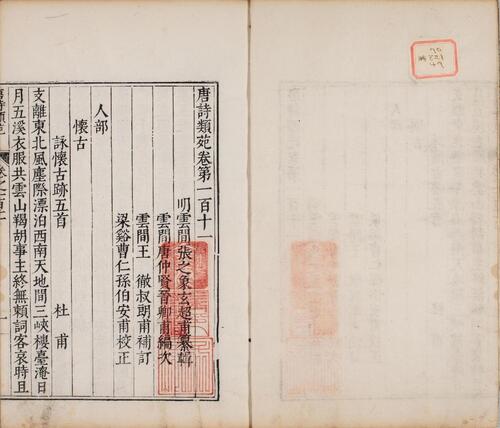 唐詩類苑卷第一百十一
明雲間張之象玄超甫纂輯
雲間唐仲賢晉卿甫編次
雲間王徹叔朗甫補訂
梁谿曹仁孫伯安甫校正
人部
懷古
詠懷古跡五首 杜甫
支離東北風塵際漂泊西南天地間三峽樓臺淹日
月五溪衣服共雲山羯胡事主終無賴詞客哀時且
唐詩類苑